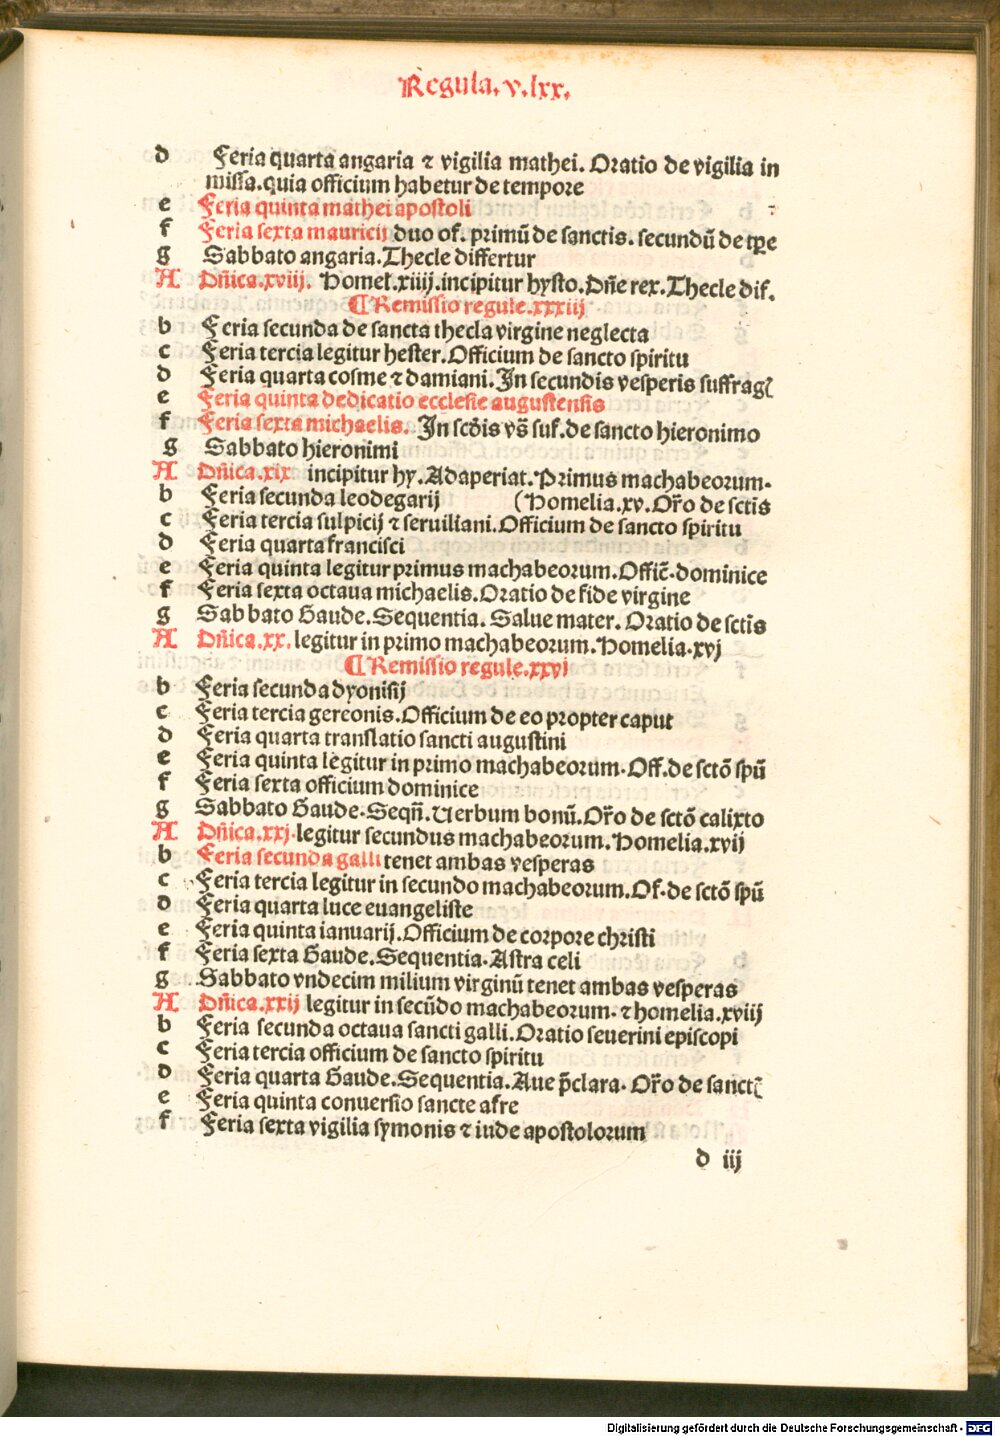 Regula. v. lxx.
d Feria quarta angaria ⁊ vigilia mathei. Oratio de vigilia in
missa. quia officium habetur de tempore
e Feria quinta mathei apostoli
f Feria sexta mauricij duo of. primū de sanctis. secundū de tpe
g Sabbato angaria. Thecle differtur
A Dn̄ica. xviij. Homel. xiiij. incipitur hysto. Dn̄e rex. Thecle dif.
¶ Remissio regule. xxxiij
b Feria secunda de sancta thecla virgine neglecta
c Feria tercia legitur hester. Officium de sancto spiritu
d Feria quarta cosme ⁊ damiani. In secundis vesperis suffragꝭ
e Feria quinta dedicatio ecclesie augustensis
f Feria sexta michaelis. In scd̄is vs̄ suf. de sancto hieronimo
g Sabbato hieronimi
A Dn̄ica. xix incipitur hy. Adaperiat. Primus machabeorum.
b Feria secunda leodegarij (Homelia. xv. Or̄o de sctis
c Feria tercia sulpicij ⁊ seruiliani. Officium de sancto spiritu
d Feria quarta francisci
e Feria quinta legitur primus machabeorum. Offic̄. dominice
f Feria sexta octaua michaelis. Oratio de fide virgine
g Sabbato Gaude. Sequentia. Salue mater. Oratio de sctīs
A Dn̄ica. xx. legitur in primo machabeorum. Homelia. xvj
¶ Remissio regule. xxvj
b Feria secunda dyonisij
c Feria tercia gereonis. Officium de eo propter caput
d Feria quarta translatio sancti augustini
e Feria quinta legitur in primo machabeorum. Off. de sctō spū
f Feria sexta officium dominice
g Sabbato Gaude. Seqn̄. Uerbum bonū. Or̄o de sctō calixto
A Dn̄ica. xxj. legitur secundus machabeorum. Homelia. xvij
b Feria secunda galli tenet ambas vesperas
c Feria tercia legitur in secundo machabeorum. Of. de sctō spū
d Feria quarta luce euangeliste
e Feria quinta ianuarij. Officium de corpore christi
f Feria sexta Gaude. Sequentia. Astra celi
g Sabbato vndecim milium virginū tenet ambas vesperas
A Dn̄ica. xxij legitur in secūdo machabeorum. ⁊ homelia. xviij
b Feria secunda octaua sancti galli. Oratio seuerini episcopi
c Feria tercia officium de sancto spiritu
d Feria quarta Gaude. Sequentia. Aue p̄clara. Or̄o de sanctꝭ
e Feria quinta conuersio sancte afre
f Feria sexta vigilia symonis ⁊ iude apostolorum
d iij
Digitalisierung gefördert durch die Deutsche Forschungsgemeinschaft - DFG